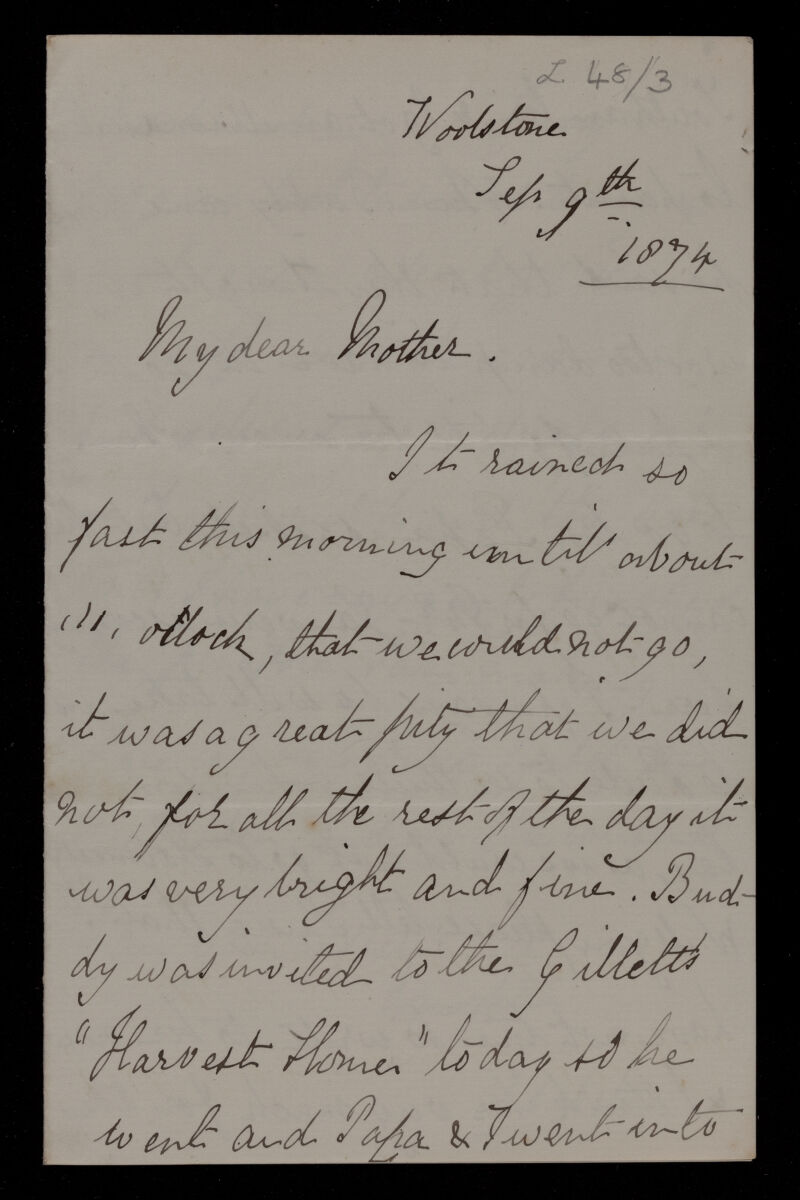 L 48/3
Woolstone
Sep 9th
1874
My dear Mother.
It rained so
fast this morning un til about
"11, o'clock, that we could not go,
it was a great pity that we did
not, for all the rest of the day it
was very bright and fine. Bud-
dy was invited to the Gillett's
"Harvest Home" to day so he
went and Papa & I went into